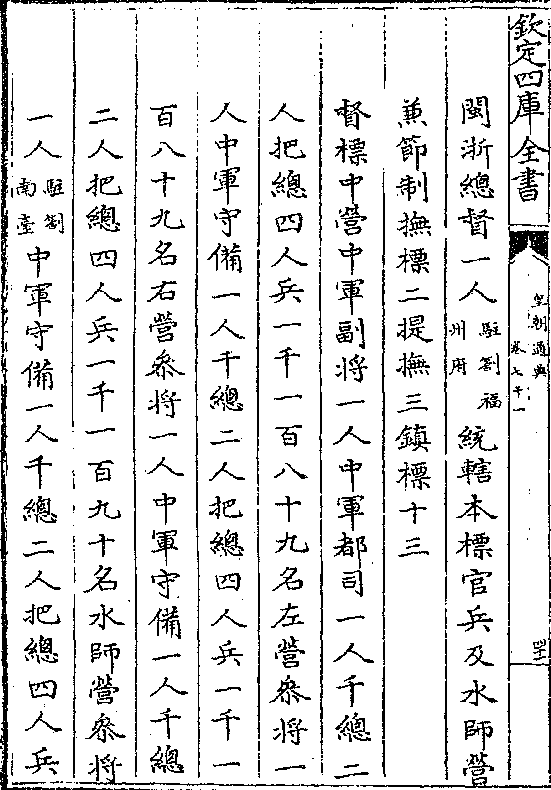 欽定四庫全書
皇朝通典
卷七十一
閩浙總督一人駐劄福州府統轄本標官兵及水師營
兼節制撫標二提撫三鎮標十三
督標中營中軍副將一人中軍都司一人千總二
人把總四人兵一千一百八十九名左營叅將一
人中軍守備一人千總二人把總四人兵一千一
百八十九名右營叅將一人中軍守備一人千總
二人把總四人兵一千一百九十名水師營叅將
一人駐劄南臺中軍守備一人千總二人把總四人兵